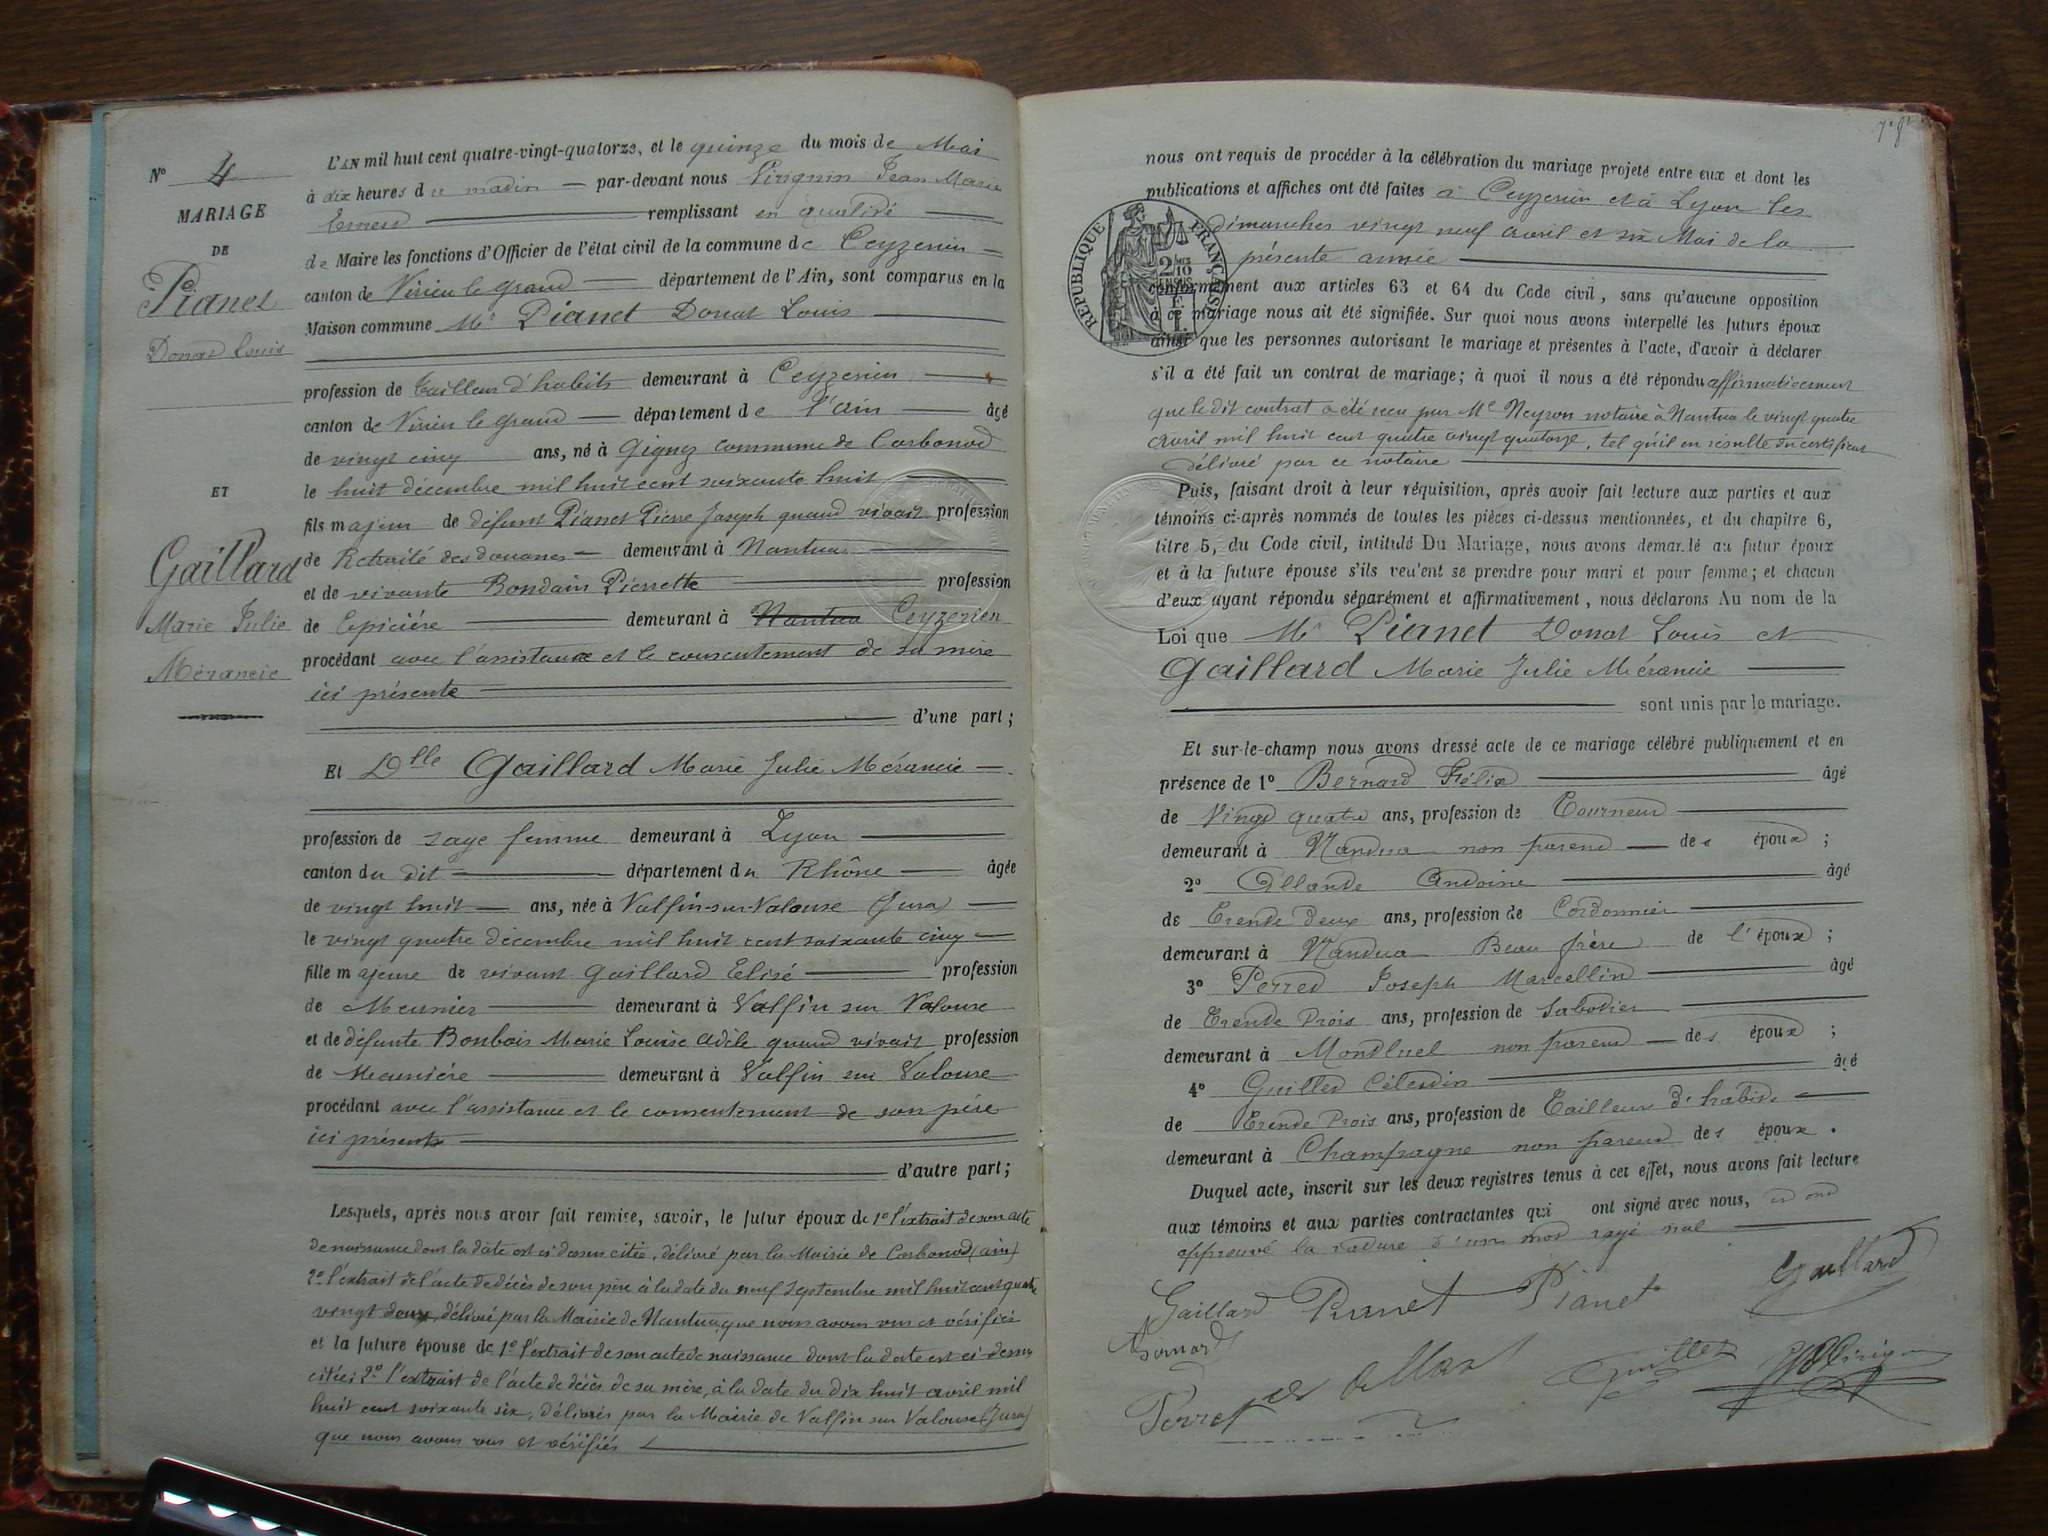 N° 4
MARIAGE
DE
Pianet
Donat Louis
ET
Gaillard
Marie Julie
Mérancie
L'AN mil huit cent quatre-vingt-quatorze, et le quinze du mois de Mai
à dix heures du matin par-devant nous Jean Marie
Ernest remplissant en qualité
de Maire les fonctions d'Officier de l'état civil de la commune de Ceyzerieu
canton de Virieu le grand département de l'Ain, sont comparus en la
Maison commune Mr Pianet Donat Louis
profession de Tailleur d'habits demeurant à Ceyzerieu
canton de Virieu le grand département de l'Ain âgé
de vingt cinq ans, né à Gignez commune de Corbonod
le huit décembre mil huit cent soixante huit
fils majeur de défunt Pianet Pierre Joseph quand vivait profession
de Retraité des douanes demeurant à Nantua
et de vivante Bondain Pierrette profession
de Epicière demeurant à Nantua Ceyzerieu
procédant avec l'assistance et le consentement de sa mère
ici présente
d'une part ;
Et Dlle Gaillard Marie Julie Mérancie
profession de sage femme demeurant à Lyon
canton du dit département du Rhône âgée
de vingt huit ans, née à Valfin-sur-Valouse (Jura)
le vingt quatre décembre mil huit cent soixante cinq
fille majeure de vivant Gaillard Elisé profession
de Meunier demeurant à Valfin sur Valouse
et de défunte Bonbois Marie Louise Adèle quand vivait profession
de Meunière demeurant à Valfin sur Valouse
procédant avec l'assistance et le consentement de son père
ici présent
d'autre part ;
Lesquels, après nous avoir fait remise, savoir, le futur époux de 1° l'extrait de son acte
de naissance dont la date est ci dessus citée, délivré par la Mairie de Corbonod (ain)
2° l'extrait de l'acte de décès de son père à la date du neuf septembre mil huit cent quatre
vingt deux, délivré par la Mairie de Nantua, que nous avons vus et vérifiés
et la future épouse de 1° l'extrait de son acte de naissance dont la date est ci dessus
citée; 2° l'extrait de l'acte de décès de sa mère, à la date du dix huit avril mil
huit cent soixante six, délivrés par la Mairie de Valfin sur Valouse (Jura)
que nous avons vus et vérifiés
nous ont requis de procéder à la célébration du mariage projeté entre eux et dont les
publications et affiches ont été faites à Ceyzerieu et à Lyon les
dimanches vingt neuf avril et six Mai de la
présente année
REPUBLIQUE FRANÇAISE
conformément aux articles 63 et 64 du Code civil, sans qu'aucune opposition
à ce mariage nous ait été signifiée. Sur quoi nous avons interpellé les futurs époux
ainsi que les personnes autorisant le mariage et présentes à l'acte, d'avoir à déclarer
s'il a été fait un contrat de mariage ; à quoi il nous a été répondu affirmativement
que le dit contrat a été reçu par Me Neyron notaire à Nantua le vingt quatre
avril mil huit cent quatre vingt quatorze, tel qu'il en résulte du certificat
délivré par ce notaire
Puis, faisant droit à leur réquisition, après avoir fait lecture aux parties et aux
témoins ci-après nommés de toutes les pièces ci-dessus mentionnées, et du chapitre 6,
titre 5, du Code civil, intitulé Du Mariage, nous avons demandé au futur époux
et à la future épouse s'ils veulent se prendre pour mari et pour femme ; et chacun
d'eux ayant répondu séparément et affirmativement, nous déclarons Au nom de la
Loi que Mr Pianet Donat Louis et
Gaillard Marie Julie Mérancie
sont unis par le mariage.
Et sur-le-champ nous avons dressé acte de ce mariage célébré publiquement et en
présence de 1° Bernard Félix âgé
de Vingt quatre ans, profession de Tourneur
demeurant à Nantua non parent des époux ;
2° Allande Antoine âgé
de Trente deux ans, profession de Cordonnier
demeurant à Nantua Beau frère de l'époux ;
3° Perret Joseph Marcellin âgé
de Trente trois ans, profession de Sabotier
demeurant à Montluel non parent des époux ;
4° Guillet Célestin âgé
de Trente trois ans, profession de Tailleur d'habits
demeurant à Champagne non parent des époux.
Duquel acte, inscrit sur les deux registres tenus à cet effet, nous avons fait lecture
aux témoins et aux parties contractantes qui ont signé avec nous, et ont
approuvé la rature d'un mot rayé nul
Gaillard Pianet Pianet Gaillard
Bernard
Perret Guillet